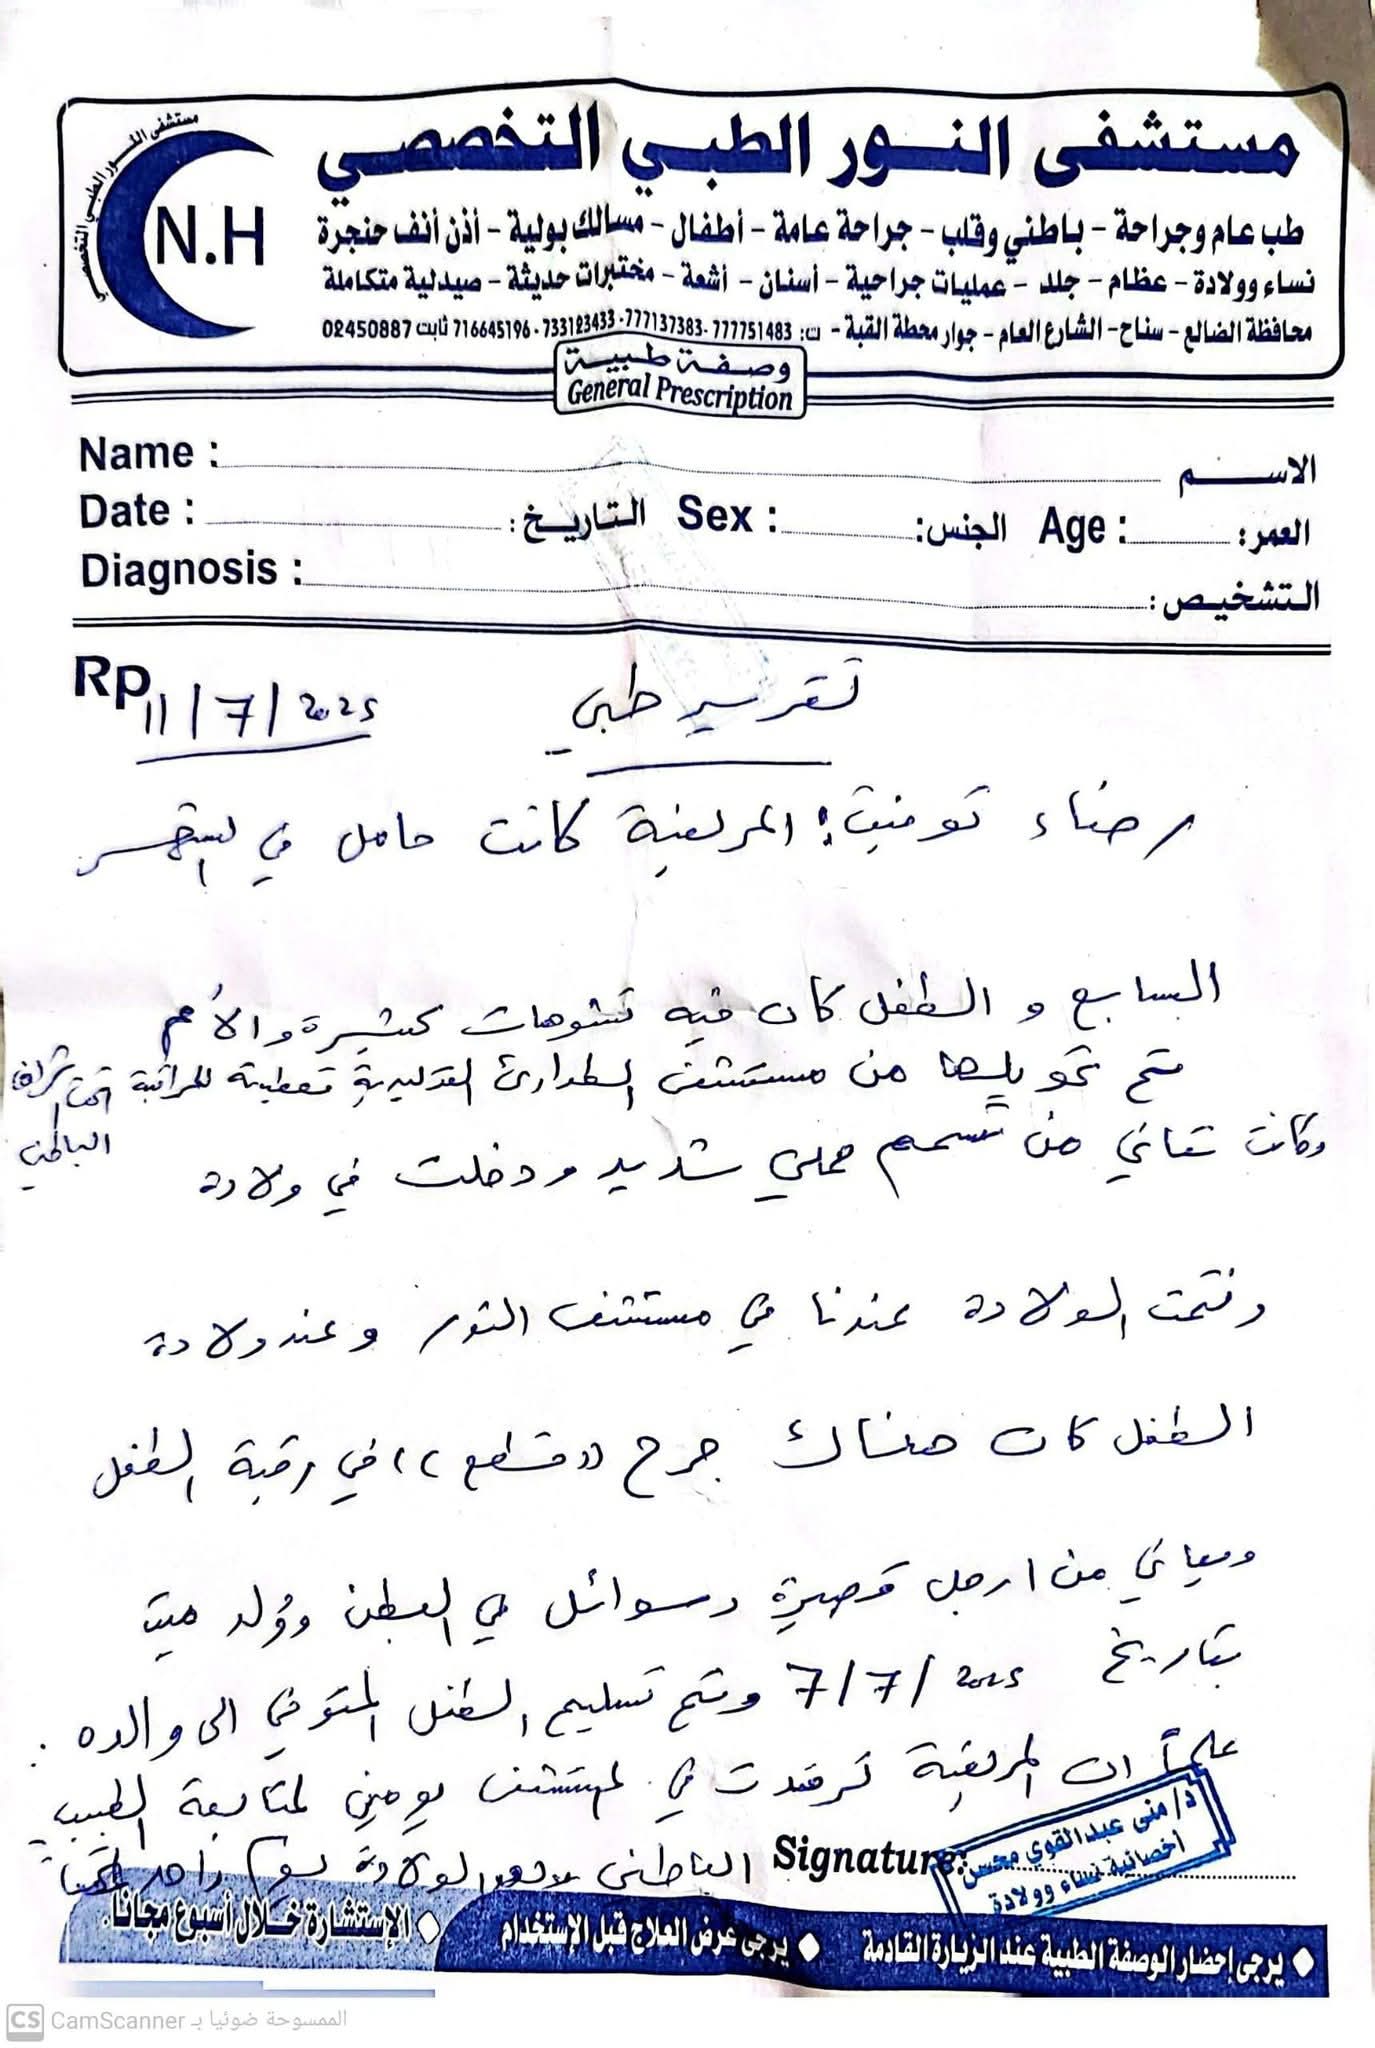 مستشفى النور الطبي التخصصي
طب عام وجراحة - باطني وقلب - جراحة عامة - أطفال - مسالك بولية - أذن أنف حنجرة
نساء وولادة - عظام - جلد - عمليات جراحية - أسنان - أشعة - مختبرات حديثة - صيدلية متكاملة
محافظة الضالع - سناح - الشارع العام - جوار محطة القبة - ت: 777751483 - 777137383 - 733123433 - 716645196 ثابت 02450887
مستشفى النور الطبي التخصصي
N.H
وصفة طبية
General Prescription
Name : الاسم
Date : التاريخ: Sex : الجنس: Age : العمر:
Diagnosis : التشخيص:
Rp
11/7/2025 تقرير طبي
رضاء توفيق: المريضة كانت حامل في الشهر
السابع و الطفل كان فيه تشوهات كثيرة و الأم
تم تحويلها من مستشفى الطوارئ التوليدية قعطبة للمراقبة تحت اشراف
الباطني
وكانت تعاني من تسمم حملي شديد ودخلت في ولادة
وتمت الولادة عندنا في مستشفى النور وعند ولادة
الطفل كان هناك جرح ((قطع)) في رقبة الطفل
ويعاني من ارجل قصيرة وسوائل في البطن ووُلد ميت
بتاريخ 7/7/2025 وتم تسليم الطفل المتوفي الى والده .
علماً ان المريضة ترقدت في المستشفى يومين لمتابعة الطبيب
الباطني الولادة يوم واحد
Signature:
د/ منى عبدالقوي محسن
أخصائية نساء وولادة
◆ يرجى إحضار الوصفة الطبية عند الزيارة القادمة ◆ يرجى عرض العلاج قبل الإستخدام ◆ الإستشارة خلال أسبوع مجاناً.
CS CamScanner الممسوحة ضوئيا بـ